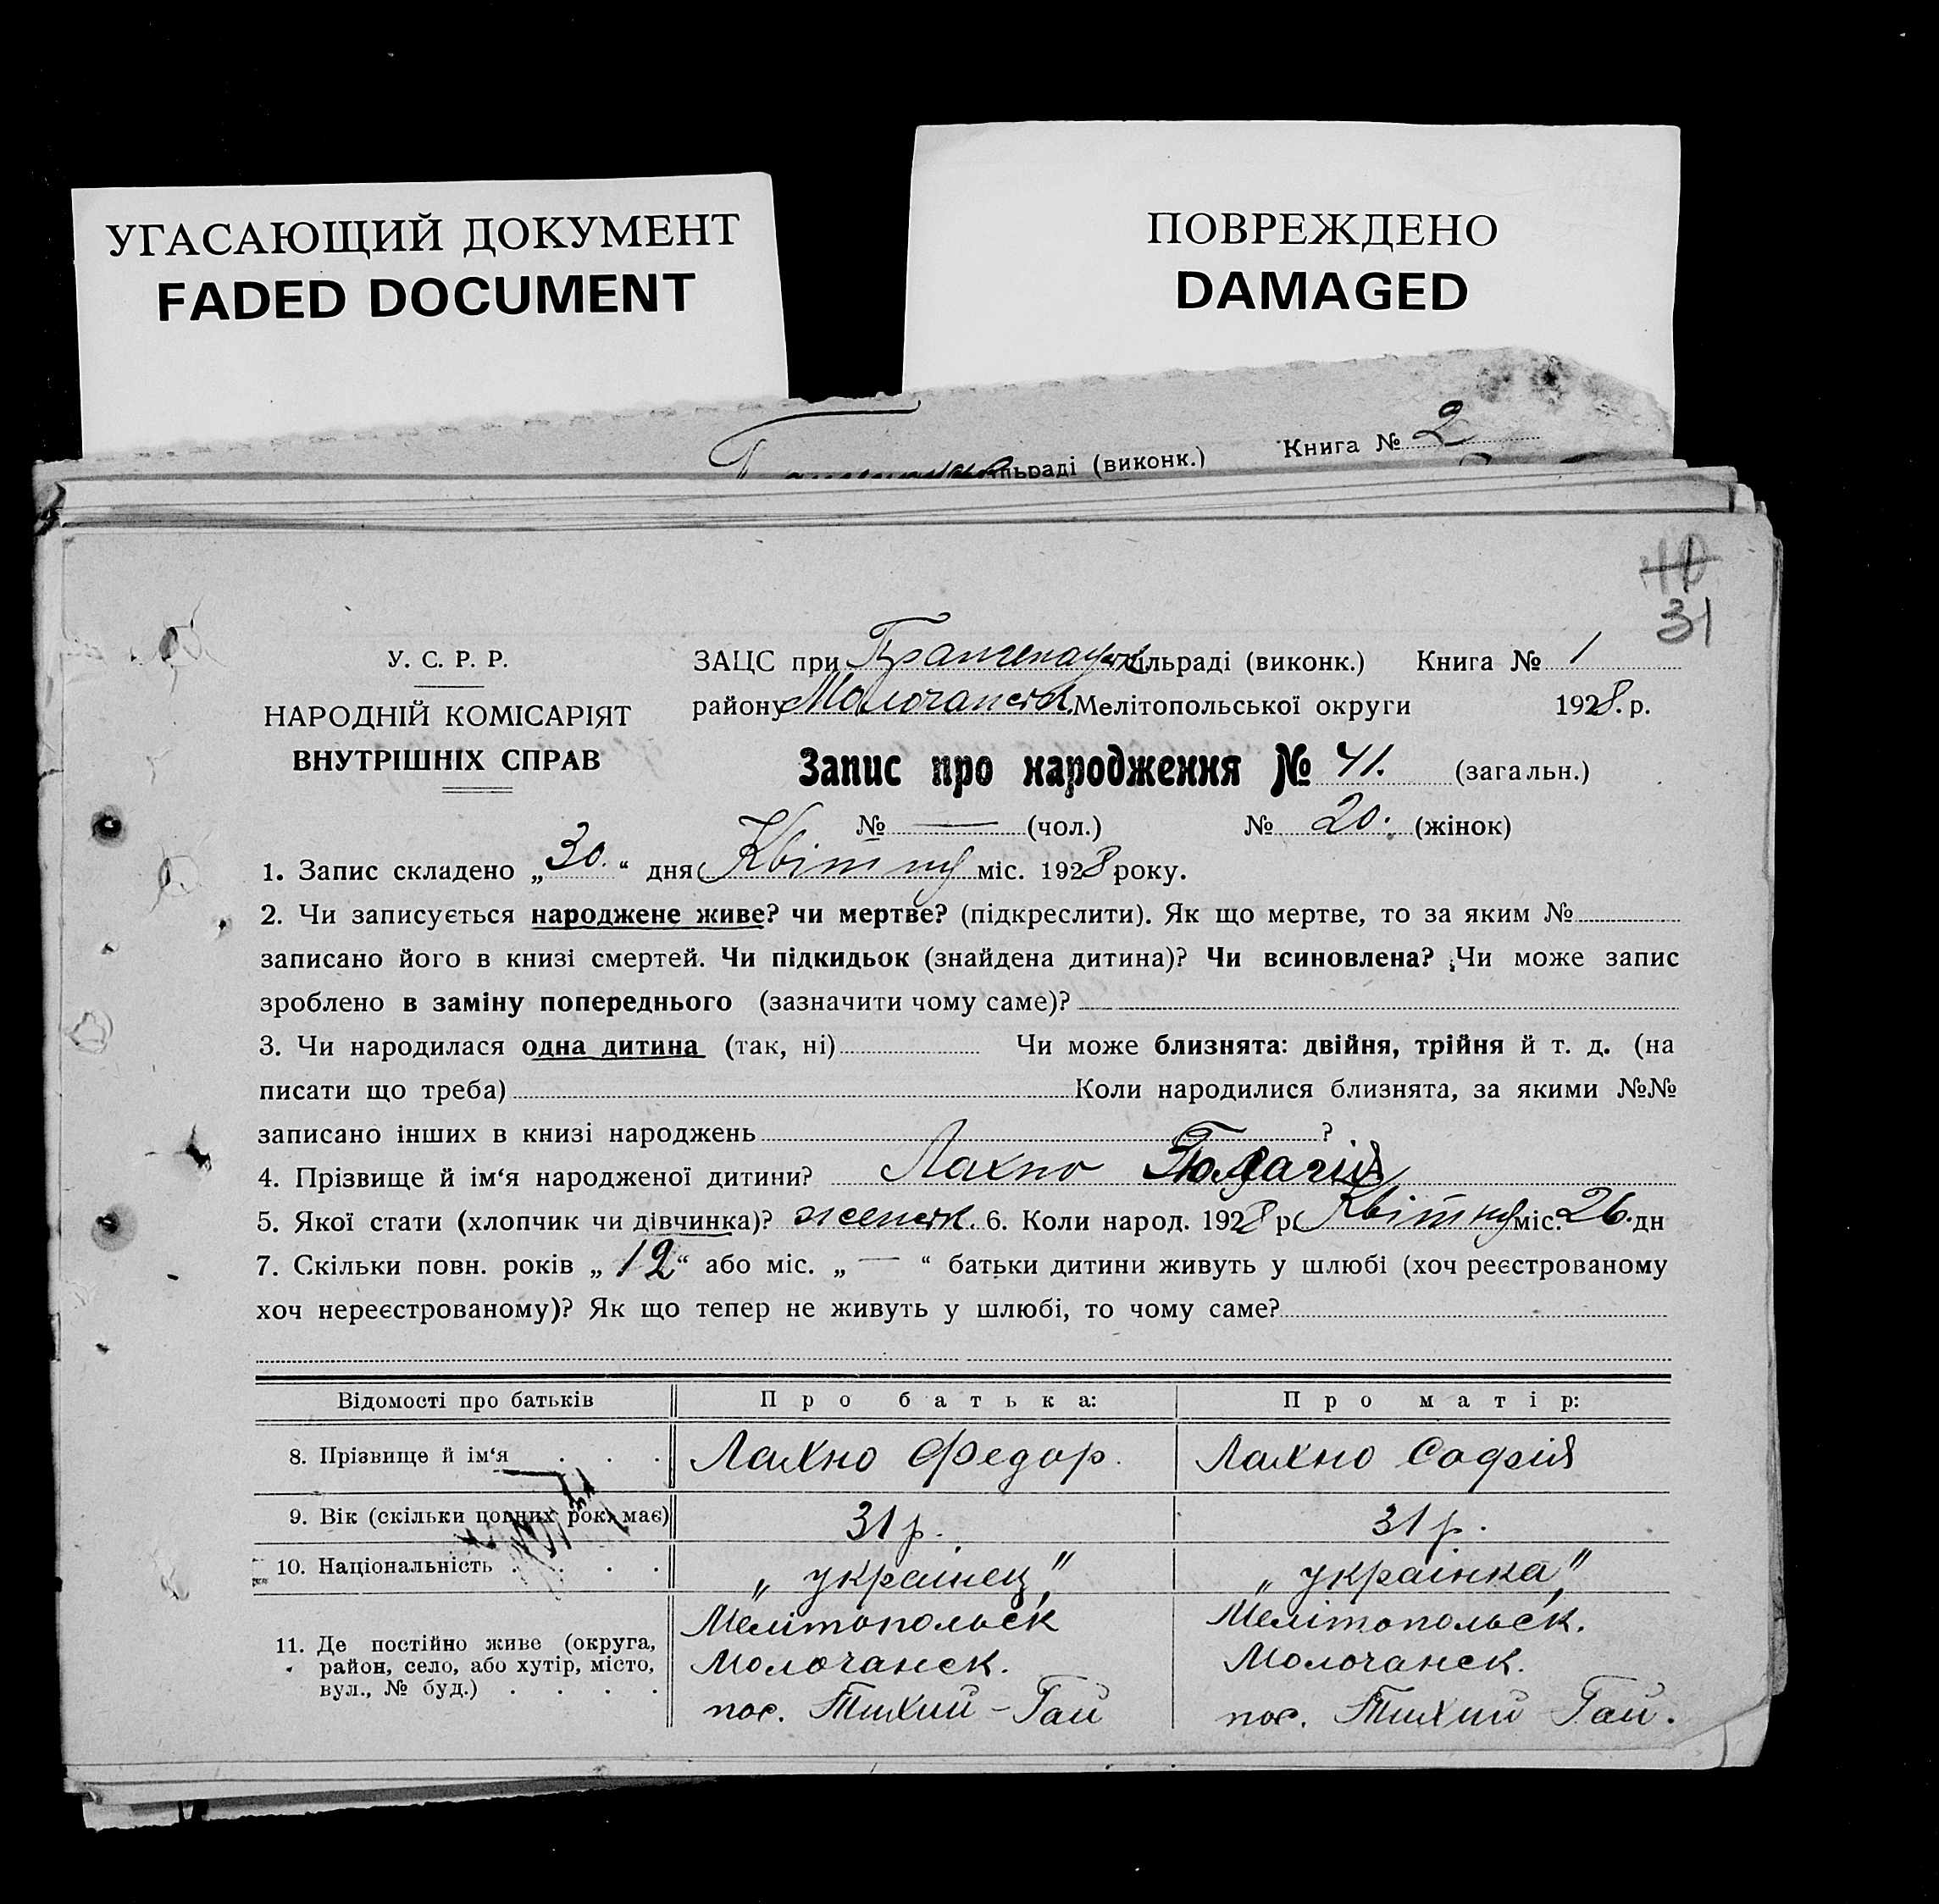 УГАСАЮЩИЙ ДОКУМЕНТ
FADED DOCUMENT
ПОВРЕЖДЕНО
DAMAGED
льраді (виконк.) Книга № 2
40
31
У. С. Р. Р.
НАРОДНІЙ КОМІСАРІЯТ
ВНУТРІШНІХ СПРАВ
ЗАЦС при сільраді (виконк.) Книга № 1
району Молочанськ Мелітопольської округи 1928. р.
Запис про народження № 41. (загальн.)
№ — (чол.) № 20. (жінок)
1. Запис складено „30.“ дня Квітня міс. 1928 року.
2. Чи записується народжене живе? чи мертве? (підкреслити). Як що мертве, то за яким №
записано його в книзі смертей. Чи підкидьок (знайдена дитина)? Чи всиновлена? Чи може запис
зроблено в заміну попереднього (зазначити чому саме)?
3. Чи народилася одна дитина (так, ні) Чи може близнята: двійня, трійня й т. д. (на
писати що треба) Коли народилися близнята, за якими №№
записано інших в книзі народжень ?
4. Прізвище й ім‘я народженої дитини? Лахно
5. Якої стати (хлопчик чи дівчинка)? женськ. 6. Коли народ. 1928 р. Квітня міс. 26. дн
7. Скільки повн. років „12“ або міс. „—“ батьки дитини живуть у шлюбі (хоч реєстрованому
хоч нереєстрованому)? Як що тепер не живуть у шлюбі, то чому саме?
Відомості про батьків Про батька: Про матір:
8. Прізвище й ім‘я . . . Лахно Федор. Лахно Софія
9. Вік (скільки повних рок. має) 31 р. 31 р.
10. Національність . . . . „украінец“ „украінка“
11. Де постійно живе (округа,
район, село, або хутір, місто,
вул., № буд.) . . . .
Мелітопольськ
Молочанск.
пос. Тихий-Гай
Мелітопольськ.
Молочанск.
пос. Тихий Гай.